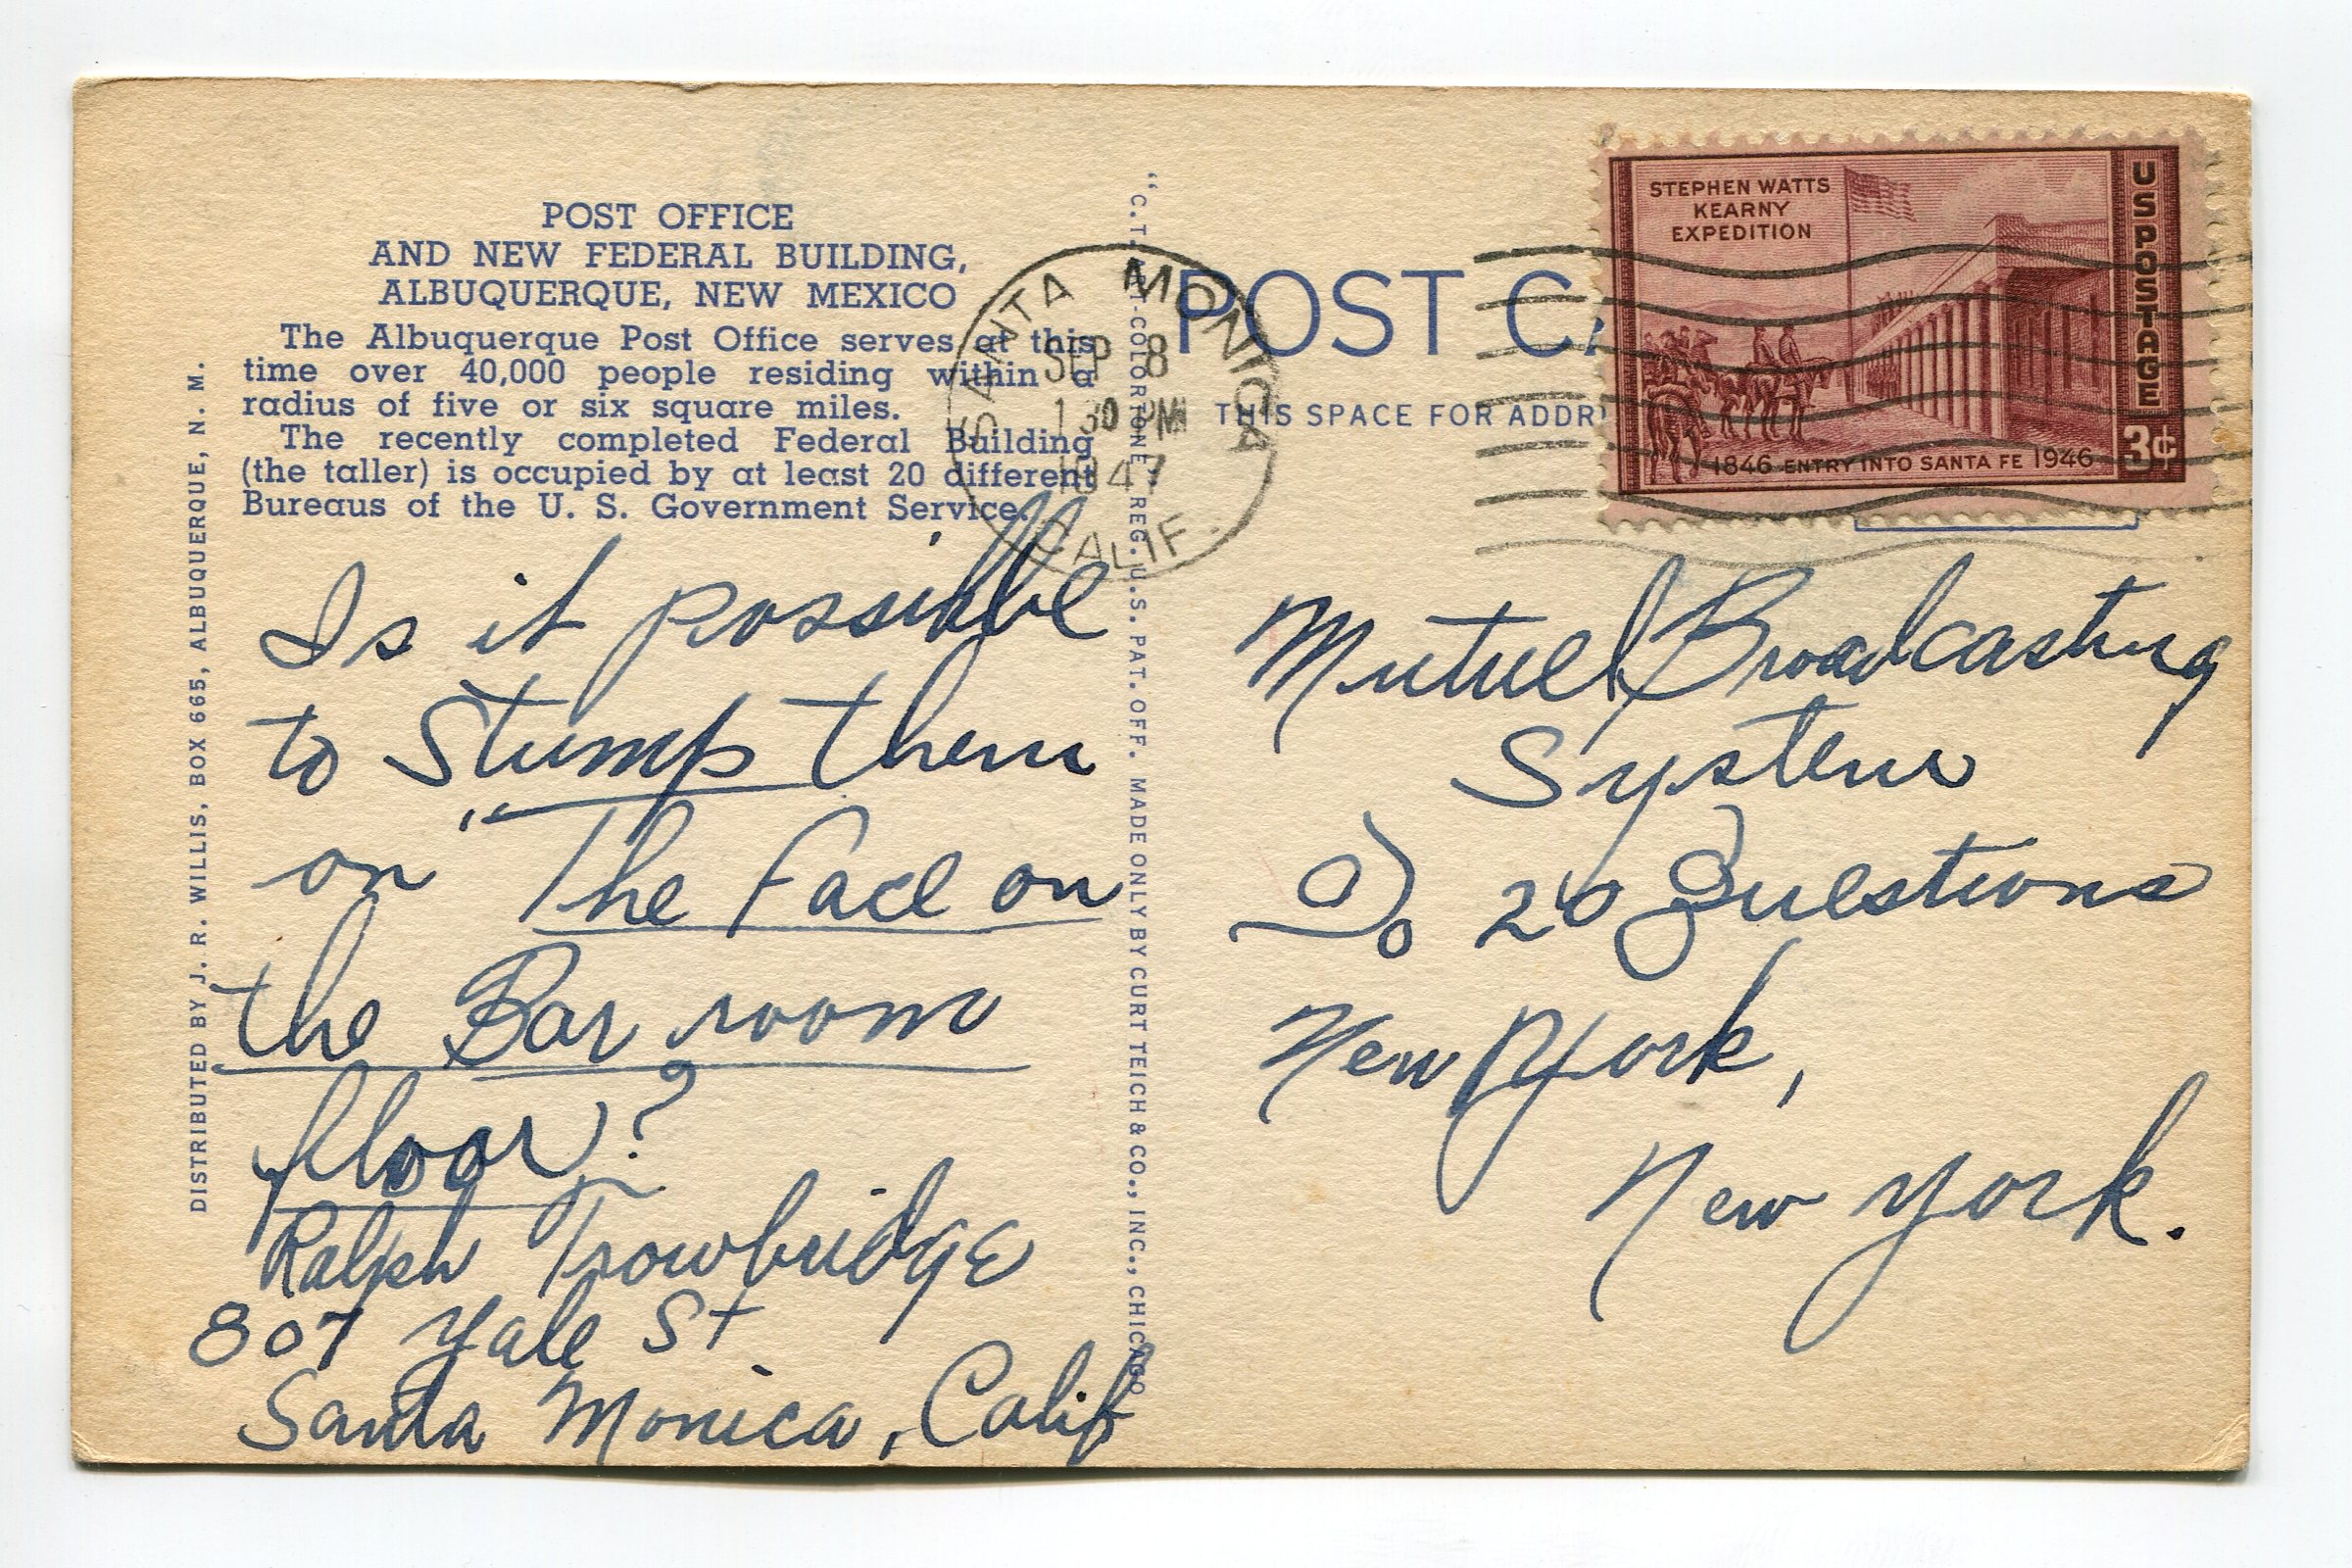 POST OFFICE
AND NEW FEDERAL BUILDING,
ALBUQUERQUE, NEW MEXICO
The Albuquerque Post Office serves at this
time over 40,000 people residing within a
radius of five or six square miles.
The recently completed Federal Building
(the taller) is occupied by at least 20 different
Bureaus of the U. S. Government Service.
DISTRIBUTED BY J. R. WILLIS, BOX 665, ALBUQUERQUE, N. M.
Is it possible
to Stump them
on "The Face on
the Bar room
floor?
Ralph Trowbridge
807 Yale St
Santa Monica, Calif
"C.T. ART-COLORTONE" REG. U.S. PAT. OFF. MADE ONLY BY CURT TEICH & CO., INC., CHICAGO
SANTA MONICA
SEP 8
1 30 PM
1947
CALIF.
POST CA
THIS SPACE FOR ADDR
STEPHEN WATTS
KEARNY
EXPEDITION
U S POSTAGE
1846 ENTRY INTO SANTA FE 1946
3¢
Mutuel Broadcasting
System
20 Questions
New York,
New York.